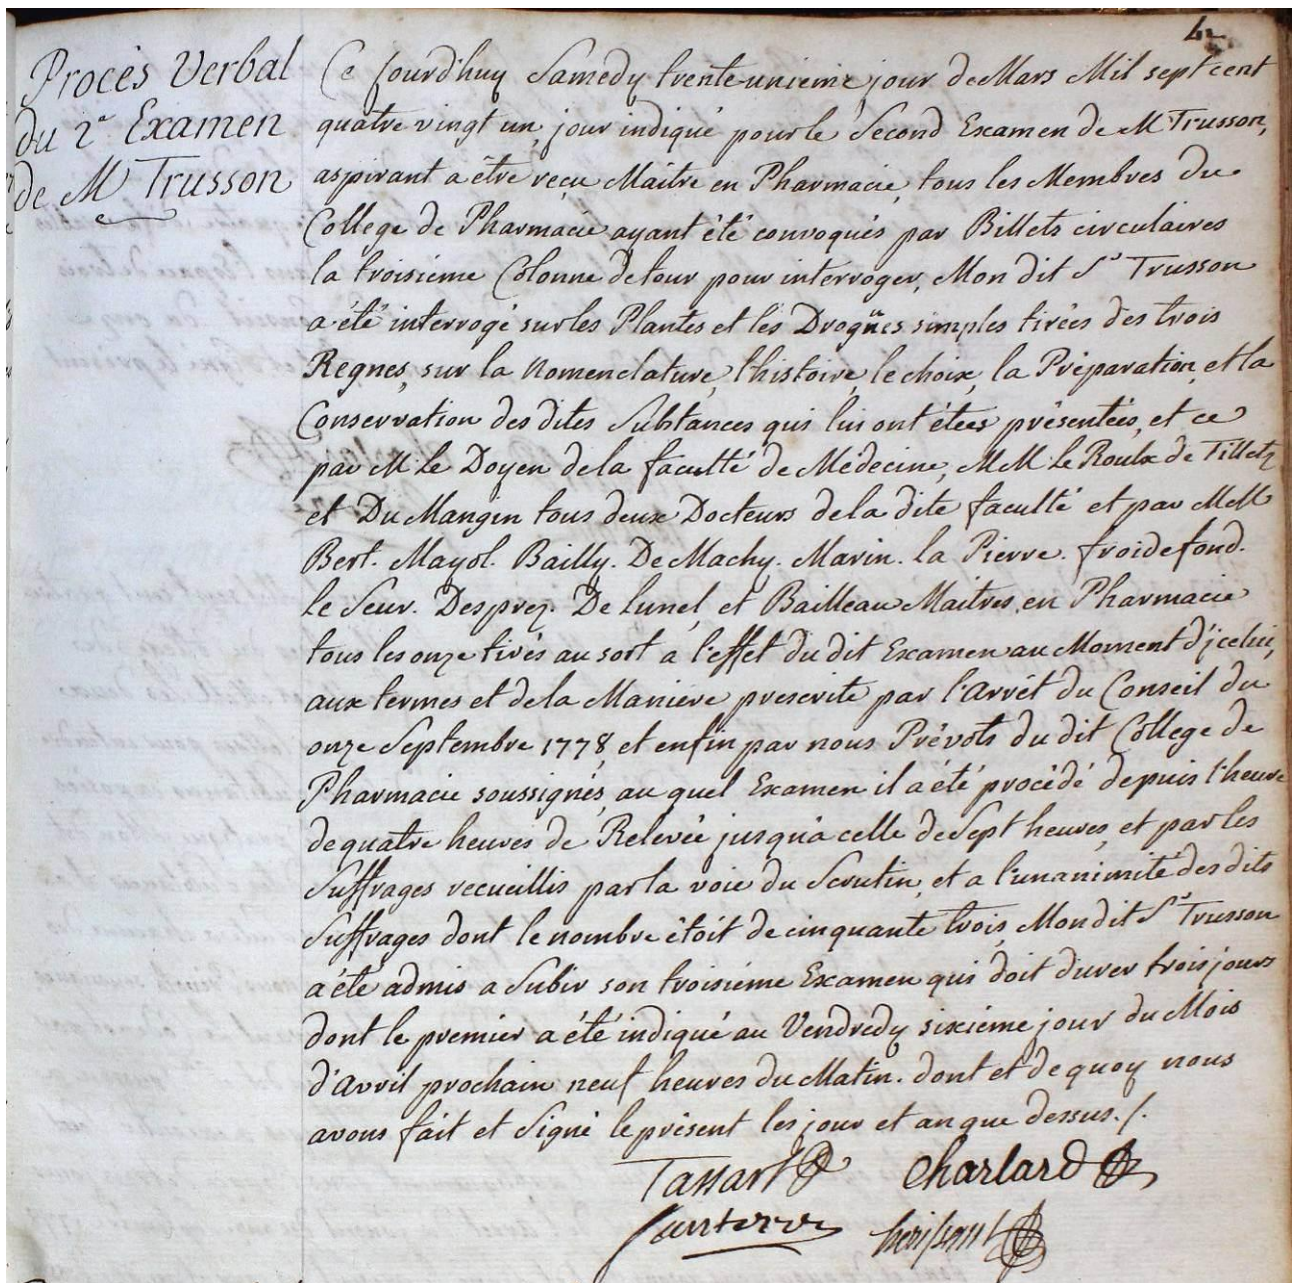 4
Procès Verbal
du 2e Examen
de Mr Trusson
Ce jourd'huy Samedy trente-unieme jour de Mars Mil sept cent
quatre vingt un, jour indiqué pour le Second Examen de Mr Trusson,
aspirant a être reçu Maitre en Pharmacie, tous les Membres du
College de Pharmacie ayant été convoqués par Billets circulaires
la troisiéme Colonne de tour pour interroger, Mon dit Sr Trusson
a été interrogé sur les Plantes et les Drogües simples tirées des trois
Regnes, sur la Nomenclature, l'histoire, le choix, la Préparation, et la
Conservation des dites Substances qui lui ont étées présentées, et ce
par Mr le Doyen de la faculté de Médecine, MM. le Roulx de Tilletz
et Du Mangin tous deux Docteurs de la dite faculté et par MM
Bert. Mayol. Bailly. De Machy. Marin. la Pierre. froidefond.
le Seur. Desprez. De lunel, et Bailleau Maitres en Pharmacie
tous les onze tirés au sort a l'effet du dit Examen au Moment d'jcelui,
aux termes et de la Maniere prescrite par l'arrêt du Conseil du
onze Septembre 1778, et enfin par nous Prévots du dit College de
Pharmacie soussignés, au quel Examen il a été procédé depuis l'heure
de quatre heures de Relevée jusqu'a celle de Sept heures, et par les
Suffrages recueillis par la voie du Scrutin, et a l'unanimité des dits
Suffrages dont le nombre étoit de cinquante trois, Mon dit Sr Trusson
a été admis a Subir son troisiéme Examen qui doit durer trois jours
dont le premier a été indiqué au Vendredy sixiéme jour du Mois
d'avril prochain neuf heures du Matin. dont et de quoy nous
avons fait et Signé le présent les jour et an que dessus. /.
Tassart Charlard
Santerre herissant